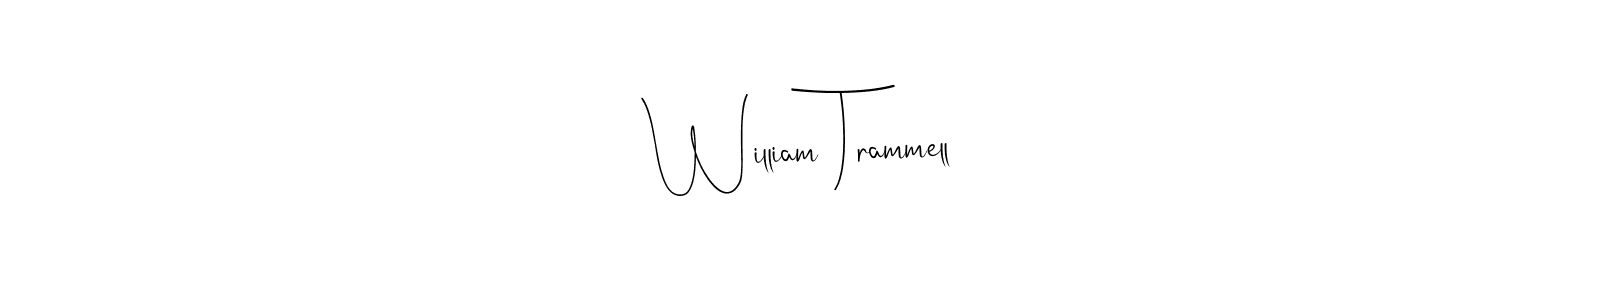 William Trammell